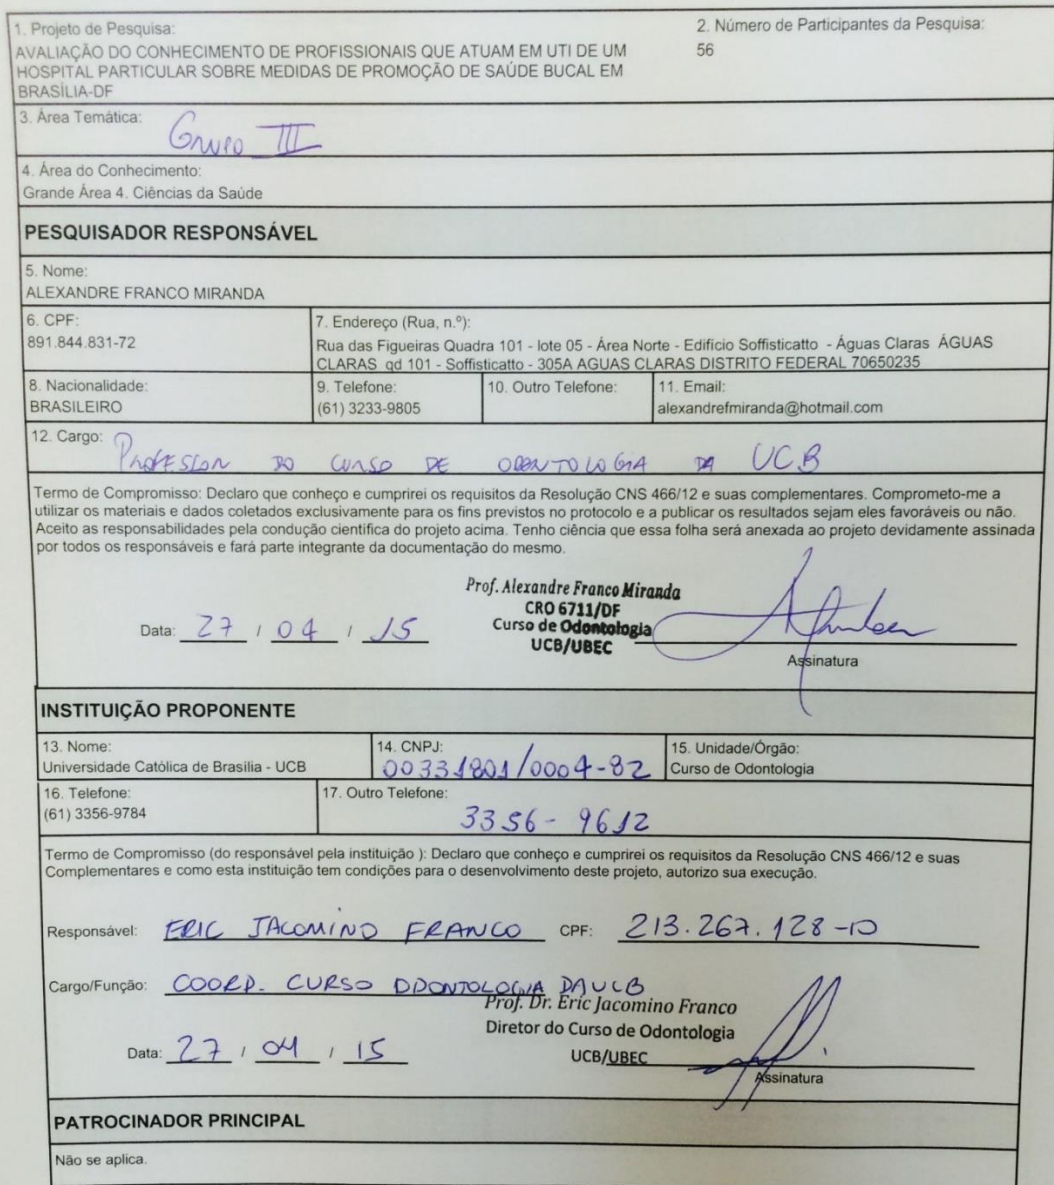 1. Projeto de Pesquisa:
AVALIAÇÃO DO CONHECIMENTO DE PROFISSIONAIS QUE ATUAM EM UTI DE UM
HOSPITAL PARTICULAR SOBRE MEDIDAS DE PROMOÇÃO DE SAÚDE BUCAL EM
BRASÍLIA-DF
2. Número de Participantes da Pesquisa:
56
3. Área Temática:
Grupo III
4. Área do Conhecimento:
Grande Área 4. Ciências da Saúde
PESQUISADOR RESPONSÁVEL
5. Nome:
ALEXANDRE FRANCO MIRANDA
6. CPF:
891.844.831-72
7. Endereço (Rua, n.º):
Rua das Figueiras Quadra 101 - lote 05 - Área Norte - Edifício Soffisticatto - Águas Claras ÁGUAS
CLARAS qd 101 - Soffisticatto - 305A AGUAS CLARAS DISTRITO FEDERAL 70650235
8. Nacionalidade:
BRASILEIRO
9. Telefone:
(61) 3233-9805
10. Outro Telefone:
11. Email:
alexandrefmiranda@hotmail.com
12. Cargo: PROFESSOR DO CURSO DE ODONTOLOGIA DA UCB
Termo de Compromisso: Declaro que conheço e cumprirei os requisitos da Resolução CNS 466/12 e suas complementares. Comprometo-me a
utilizar os materiais e dados coletados exclusivamente para os fins previstos no protocolo e a publicar os resultados sejam eles favoráveis ou não.
Aceito as responsabilidades pela condução científica do projeto acima. Tenho ciência que essa folha será anexada ao projeto devidamente assinada
por todos os responsáveis e fará parte integrante da documentação do mesmo.
Prof. Alexandre Franco Miranda
CRO 6711/DF
Curso de Odontologia
UCB/UBEC
Data: 27 / 04 / 15
Assinatura
INSTITUIÇÃO PROPONENTE
13. Nome:
Universidade Católica de Brasília - UCB
14. CNPJ:
00331801/0004-82
15. Unidade/Órgão:
Curso de Odontologia
16. Telefone:
(61) 3356-9784
17. Outro Telefone:
3356-9612
Termo de Compromisso (do responsável pela instituição ): Declaro que conheço e cumprirei os requisitos da Resolução CNS 466/12 e suas
Complementares e como esta instituição tem condições para o desenvolvimento deste projeto, autorizo sua execução.
Responsável: ERIC JACOMINO FRANCO CPF: 213.267.128-10
Cargo/Função: COORD. CURSO ODONTOLOGIA DA UCB
Prof. Dr. Eric Jacomino Franco
Diretor do Curso de Odontologia
UCB/UBEC
Data: 27 / 04 / 15
Assinatura
PATROCINADOR PRINCIPAL
Não se aplica.